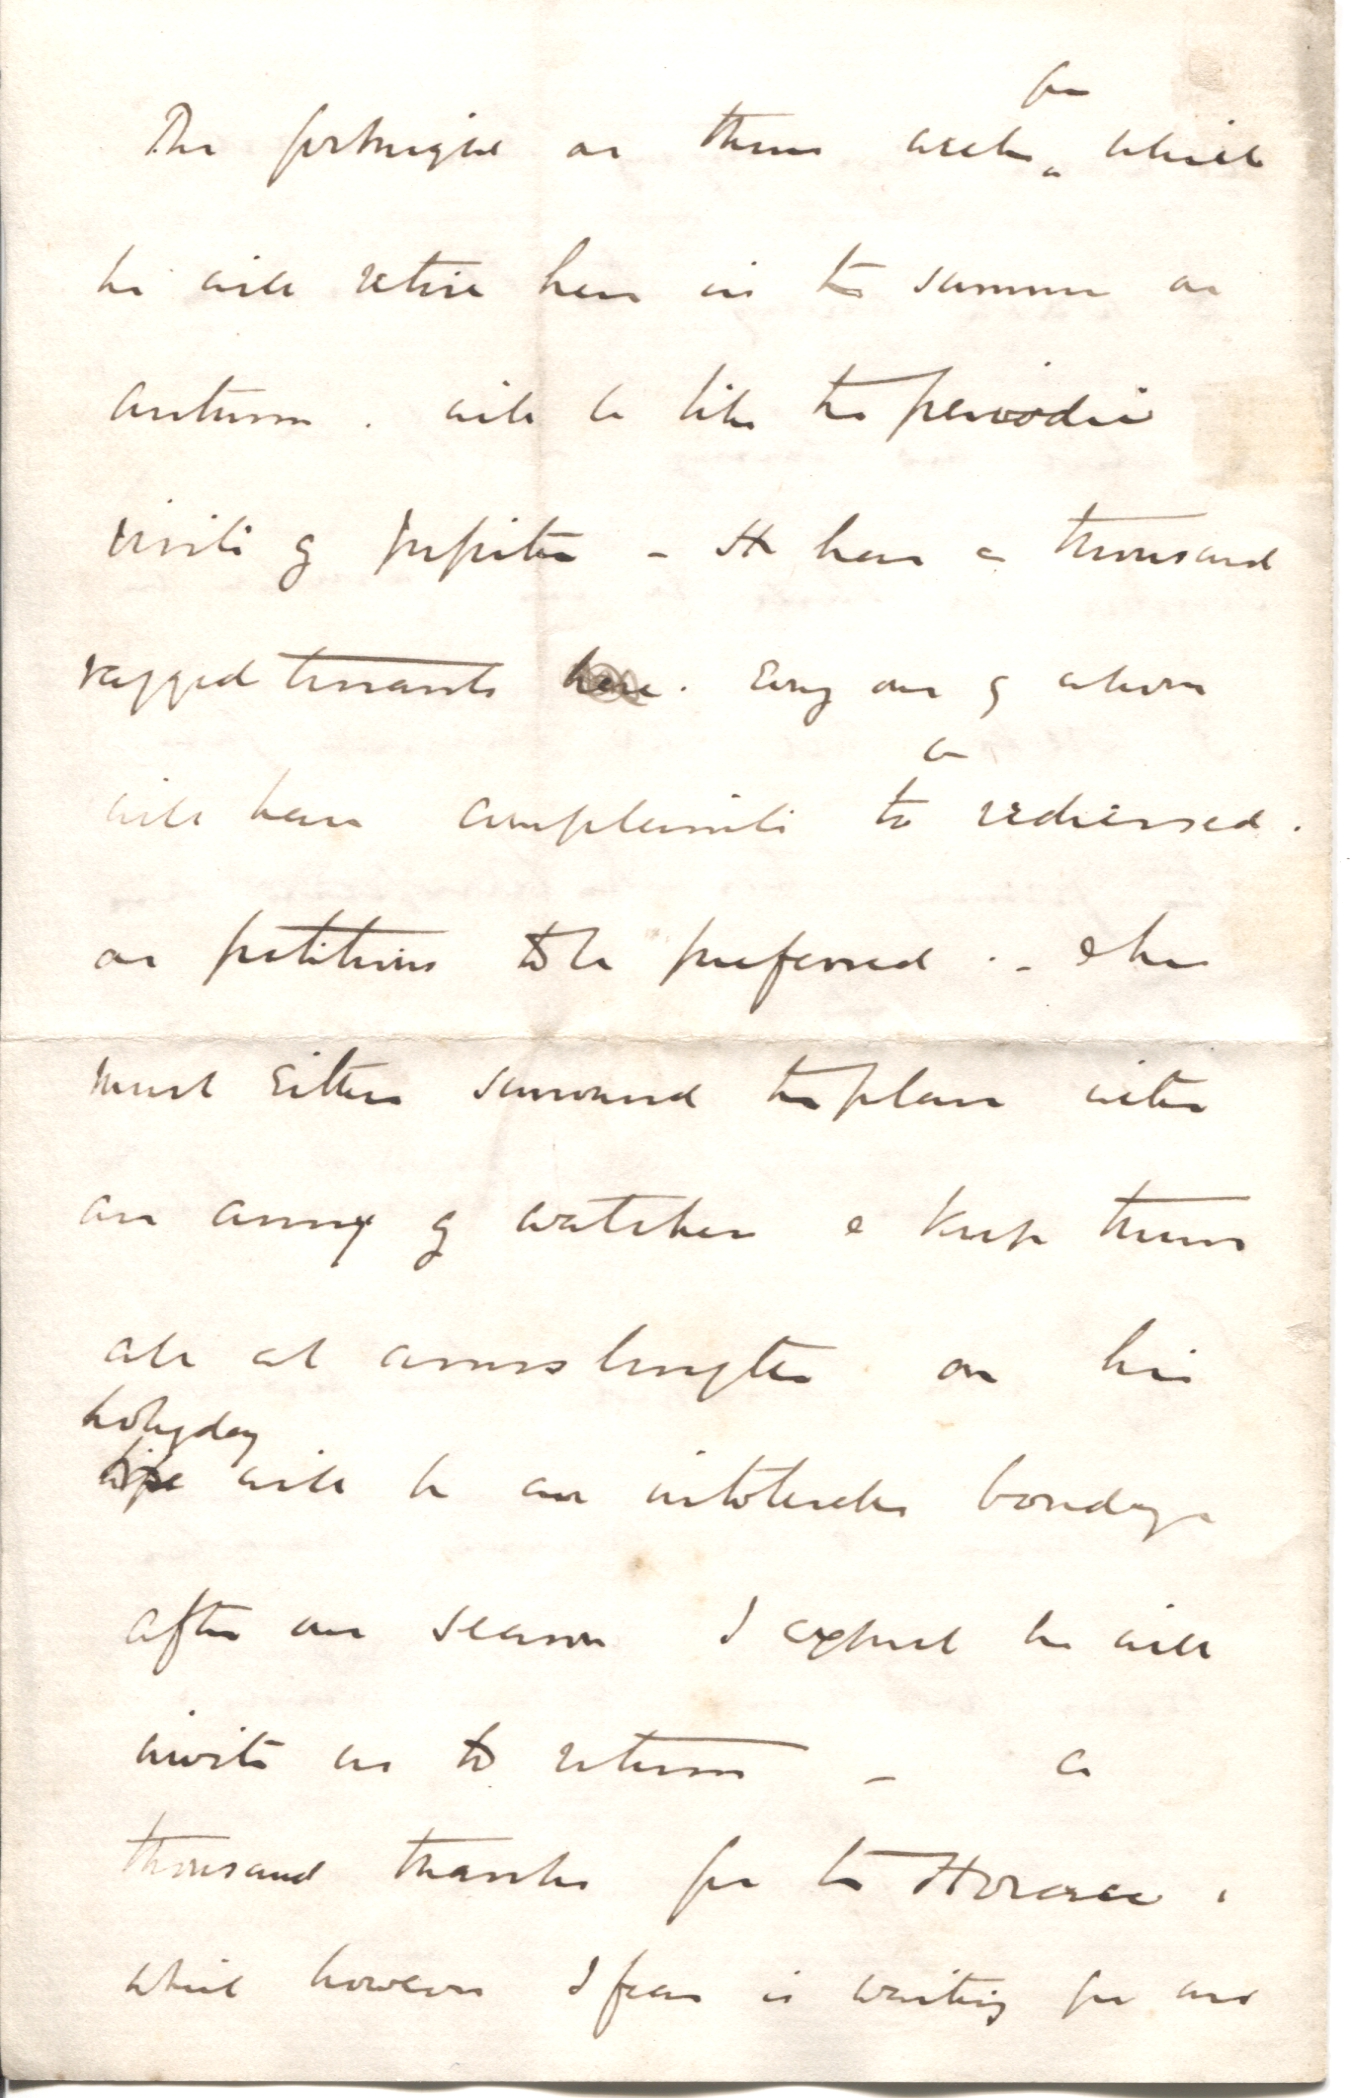 for
The fortnight or three weeks which
he will retire here in the summer or
autumn. will be like the periodic
visits of Jupiter - He has a thousand
ragged tenants here. Every one of whom
be
will have complaints to redressed.
or petitions to be preferred. - & he
must either surround the place with
an army of watchers & keep them
all at arms length or his
holyday
life will be an intolerable bondage
after one season I expect he will
invite us to return - a
thousand thanks for the Horace.
which however I fear is waiting for me